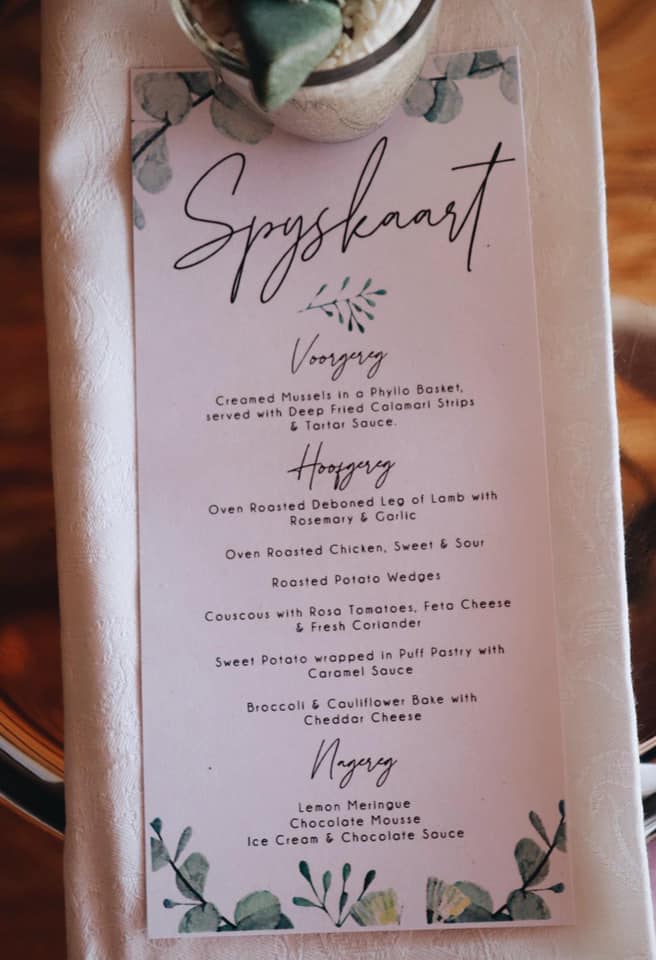 Spyskaart
Voorgereg
Creamed Mussels in a Phyllo Basket,
served with Deep Fried Calamari Strips
& Tartar Sauce.
Hoofgereg
Oven Roasted Deboned Leg of Lamb with
Rosemary & Garlic
Oven Roasted Chicken, Sweet & Sour
Roasted Potato Wedges
Couscous with Rosa Tomatoes, Feta Cheese
& Fresh Coriander
Sweet Potato wrapped in Puff Pastry with
Caramel Sauce
Broccoli & Cauliflower Bake with
Cheddar Cheese
Nagereg
Lemon Meringue
Chocolate Mousse
Ice Cream & Chocolate Sauce